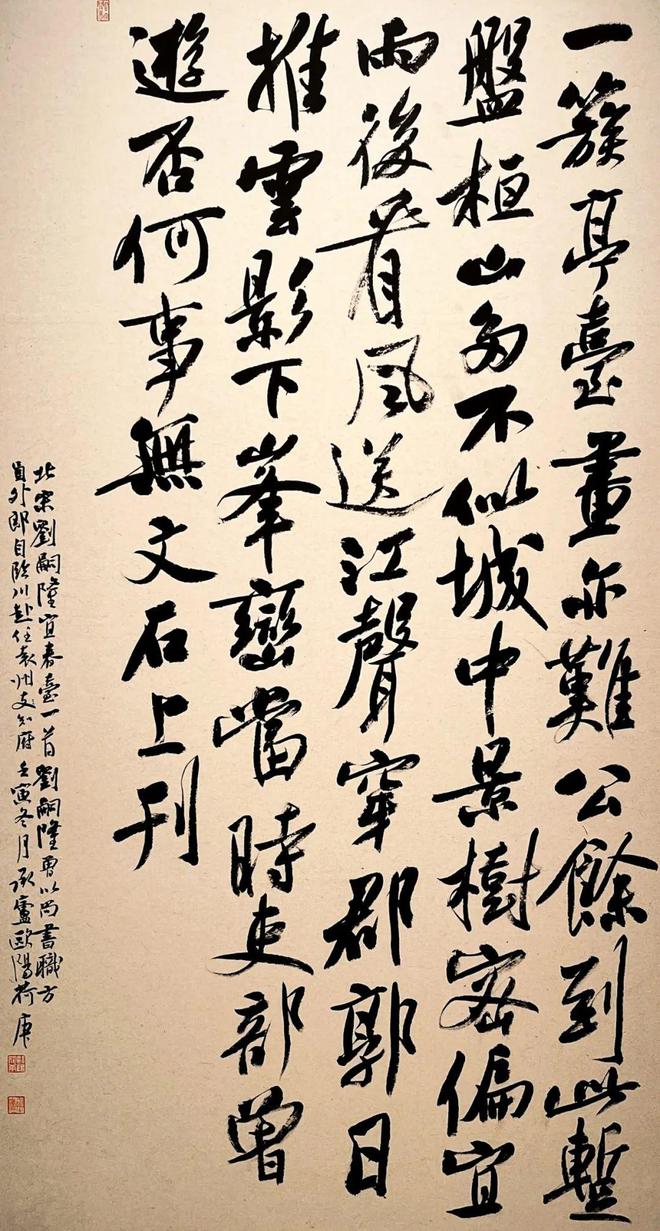 一簇亭臺畫亦難公餘到此暫
盤桓山多不似城中景樹密偏宜
雨後看風送江聲穿郡郭日
推雲影下峯巒當時吏部曾
遊否何事無文石上刊
北宋劉嗣隆宜春臺一首劉嗣隆曾以尚書職方
員外郎自臨川赴任袁州支知府壬寅冬月承廬歐陽荷庚